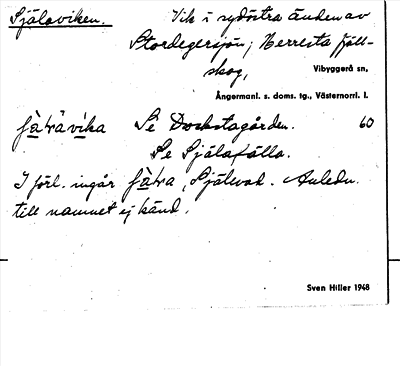 Själaviken. Vik i sydöstra änden av
Stordegersjön, Herresta fjäll-
skog, Vibyggerå sn,
Ångermanl. s. doms. tg., Västernorrl. l.
Se Dockstagården. 60
Se Själafälla.
I förl. ingår , Själevad. Anledn.
till namnet ej känd.
Sven Hiller 1948